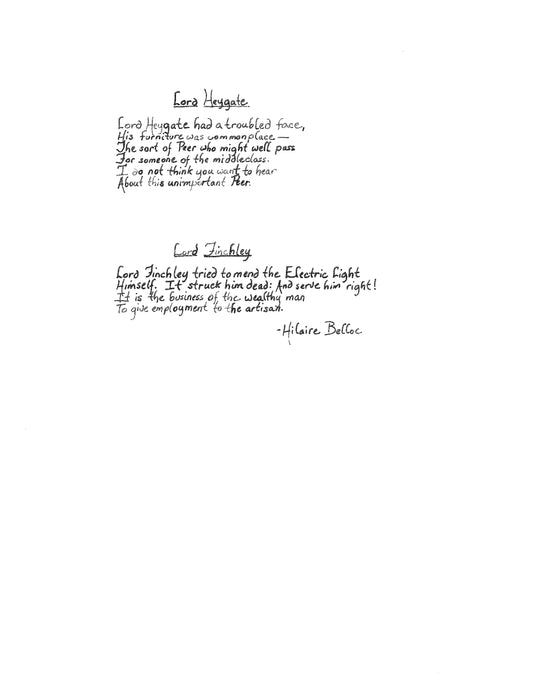 Lord Heygate
Lord Heygate had a troubled face,
His furniture was commonplace—
The sort of Peer who might well pass
For someone of the middleclass.
I do not think you want to hear
About this unimportant Peer.
Lord Finchley
Lord Finchley tried to mend the Electric Light
Himself. It struck him dead: And serve him right!
It is the business of the wealthy man
To give employment to the artisan.
-Hilaire Belloc